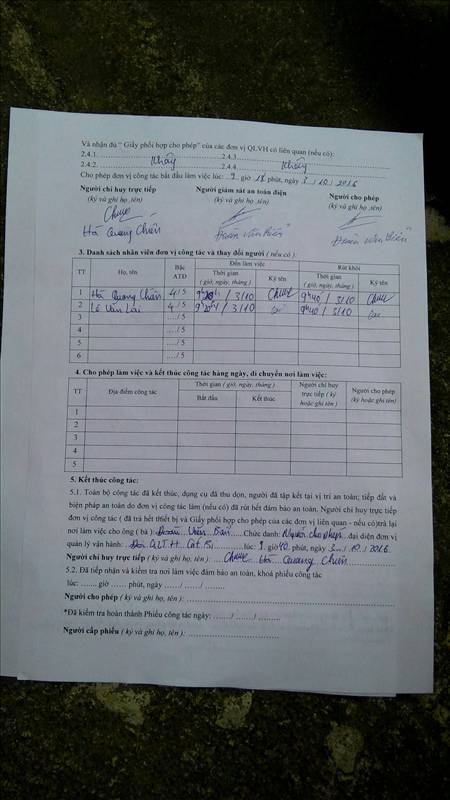 Và nhận đủ " Giấy phối hợp cho phép" của các đơn vị QLVH có liên quan (nếu có):
2.4.1. Không 2.4.3.
2.4.2. 2.4.4. Không
Cho phép đơn vị công tác bắt đầu làm việc lúc: 9 giờ 18 phút, ngày 3 / 10 / 2016
Người chỉ huy trực tiếp Người giám sát an toàn điện Người cho phép
(ký và ghi họ ,tên) (ký và ghi họ ,tên) (ký và ghi họ ,tên)
Hà Quang Chiến Đoàn Văn Biên Đoàn Văn Biên
3. Danh sách nhân viên đơn vị công tác và thay đổi người ( nếu có ):
TT Họ, tên Bậc ATĐ Đến làm việc Rút khỏi
Thời gian ( giờ, ngày, tháng ) Ký tên Thời gian ( giờ, ngày, tháng ) Ký tên
1 Hà Quang Chiến 4 / 5 / 3/10 9h40 / 3/10
2 Lê Văn Lai 4 / 5 / 3/10 9h40 / 3/10
3 …/ 5
4 …./ 5
5 …./ 5
6 …./ 5
4. Cho phép làm việc và kết thúc công tác hàng ngày, di chuyển nơi làm việc:
TT Địa điểm công tác Thời gian ( giờ, ngày, tháng ) Người chỉ huy trực tiếp ( ký hoặc ghi tên ) Người cho phép (ký hoặc ghi tên)
Bắt đầu Kết thúc
1
2
3
4
5
5. Kết thúc công tác:
5.1. Toàn bộ công tác đã kết thúc, dụng cụ đã thu dọn, người đã tập kết tại vị trí an toàn; tiếp đất và
biện pháp an toàn do đơn vị công tác làm (nếu có) đã rút hết đảm bảo an toàn. Người chỉ huy trực tiếp
đơn vị công tác ( đã trả hết thiết bị và Giấy phối hợp cho phép của các đơn vị liên quan - nếu có)trả lại
nơi làm việc cho ông ( bà ): Đoàn Văn Biên Chức danh: Người cho phép đại diện đơn vị
quản lý vận hành: Đội QLTH lúc: 9 giờ 40 phút, ngày 3 / 10 / 2016
Người chỉ huy trực tiếp ( ký và ghi họ, tên ): Hà Quang Chiến
5.2. Đã tiếp nhận và kiểm tra nơi làm việc đảm bảo an toàn, khoá phiếu công tác
lúc: ....... giờ ...... phút, ngày ....../ ....../ .......
Người cho phép ( ký và ghi họ, tên ):
*Đã kiểm tra hoàn thành Phiếu công tác ngày: ....../ ....../ .......
Người cấp phiếu ( ký và ghi họ, tên ):